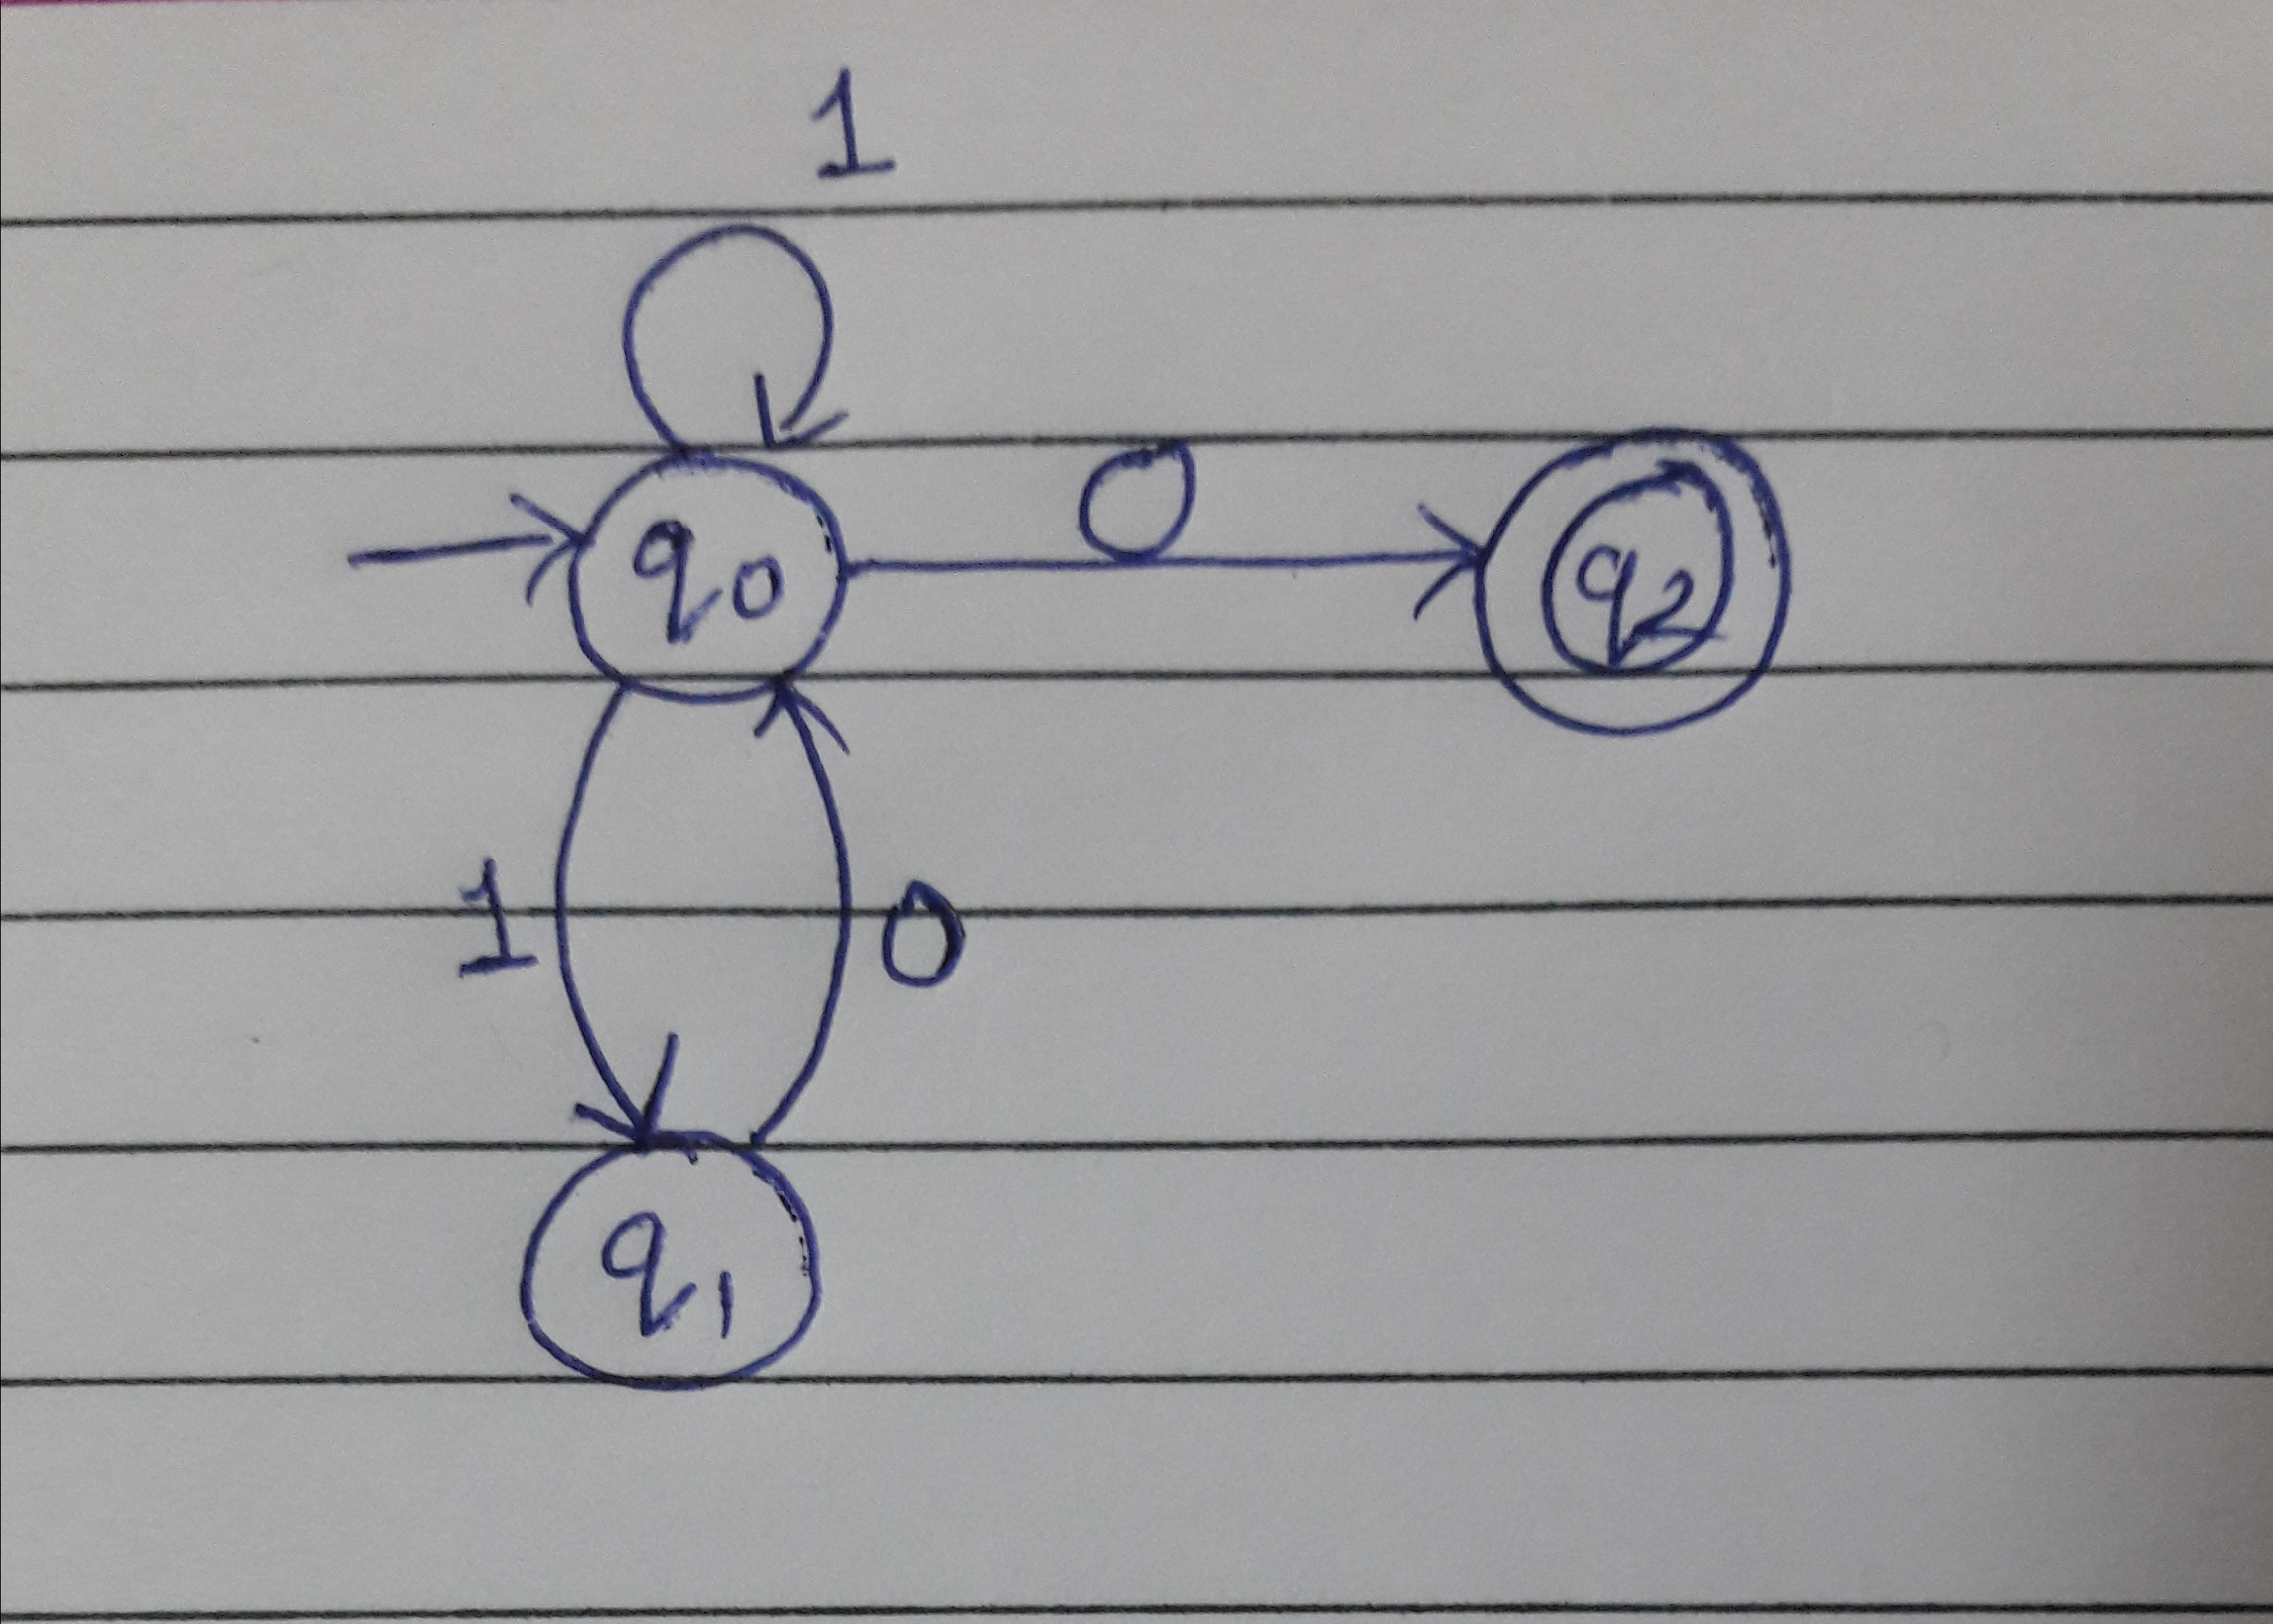 1
0
q0 q2
1 0
q1